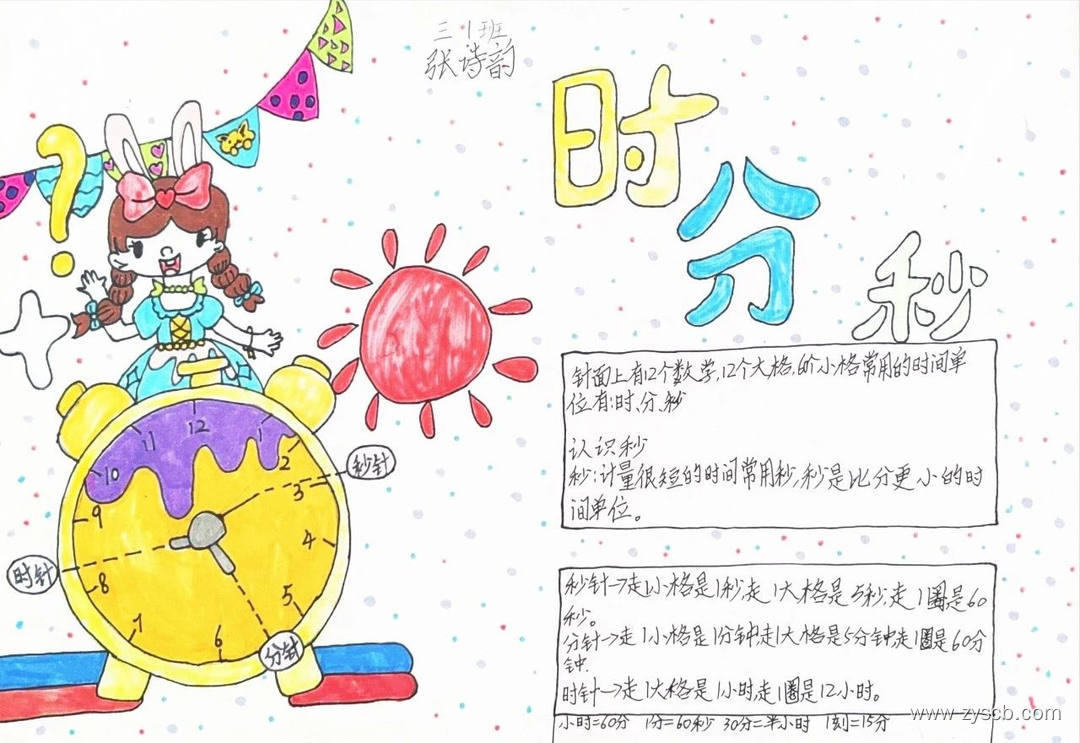 三1班
张诗韵
时
分
秒
针面上有12个数学,12个大格,60个小格常用的时间单
位有:时、分、秒
认识秒
秒:计量很短的时间常用秒,秒是比分更小的时
间单位。
秒针→走1小格是1秒,走1大格是5秒,走1圈是60
秒。
分针→走1小格是1分钟,走1大格是5分钟走1圈是60分
钟.
时针→走1大格是1小时,走1圈是12小时。
小时=60分 1分=60秒 30分=半小时 1刻=15分
?
12
11
1
10
2
秒针
9
3
时针
8
4
7
5
6
分针
www.zyscb.com